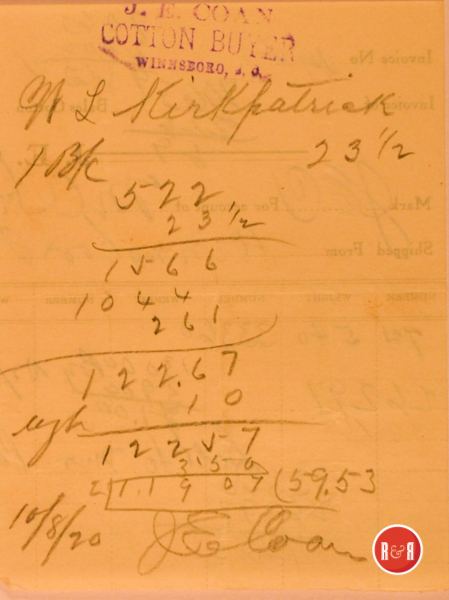 J. E. COAN
COTTON BUYER
WINNSBORO, S. C.
W L Kirkpatrick
1 B/c 23 1/2
522
23 1/2
1566
1044
261
122.67
wgh 10
122 57
3.50
2 11 9 07 (59.53
10/8/20 J E Coan
R&R
Invoice No
Invoice of
Mark
For account of
Shipped From
NUMBER WEIGHT NUMBER